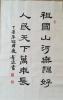 祖國山河無限好
人民天下萬年長